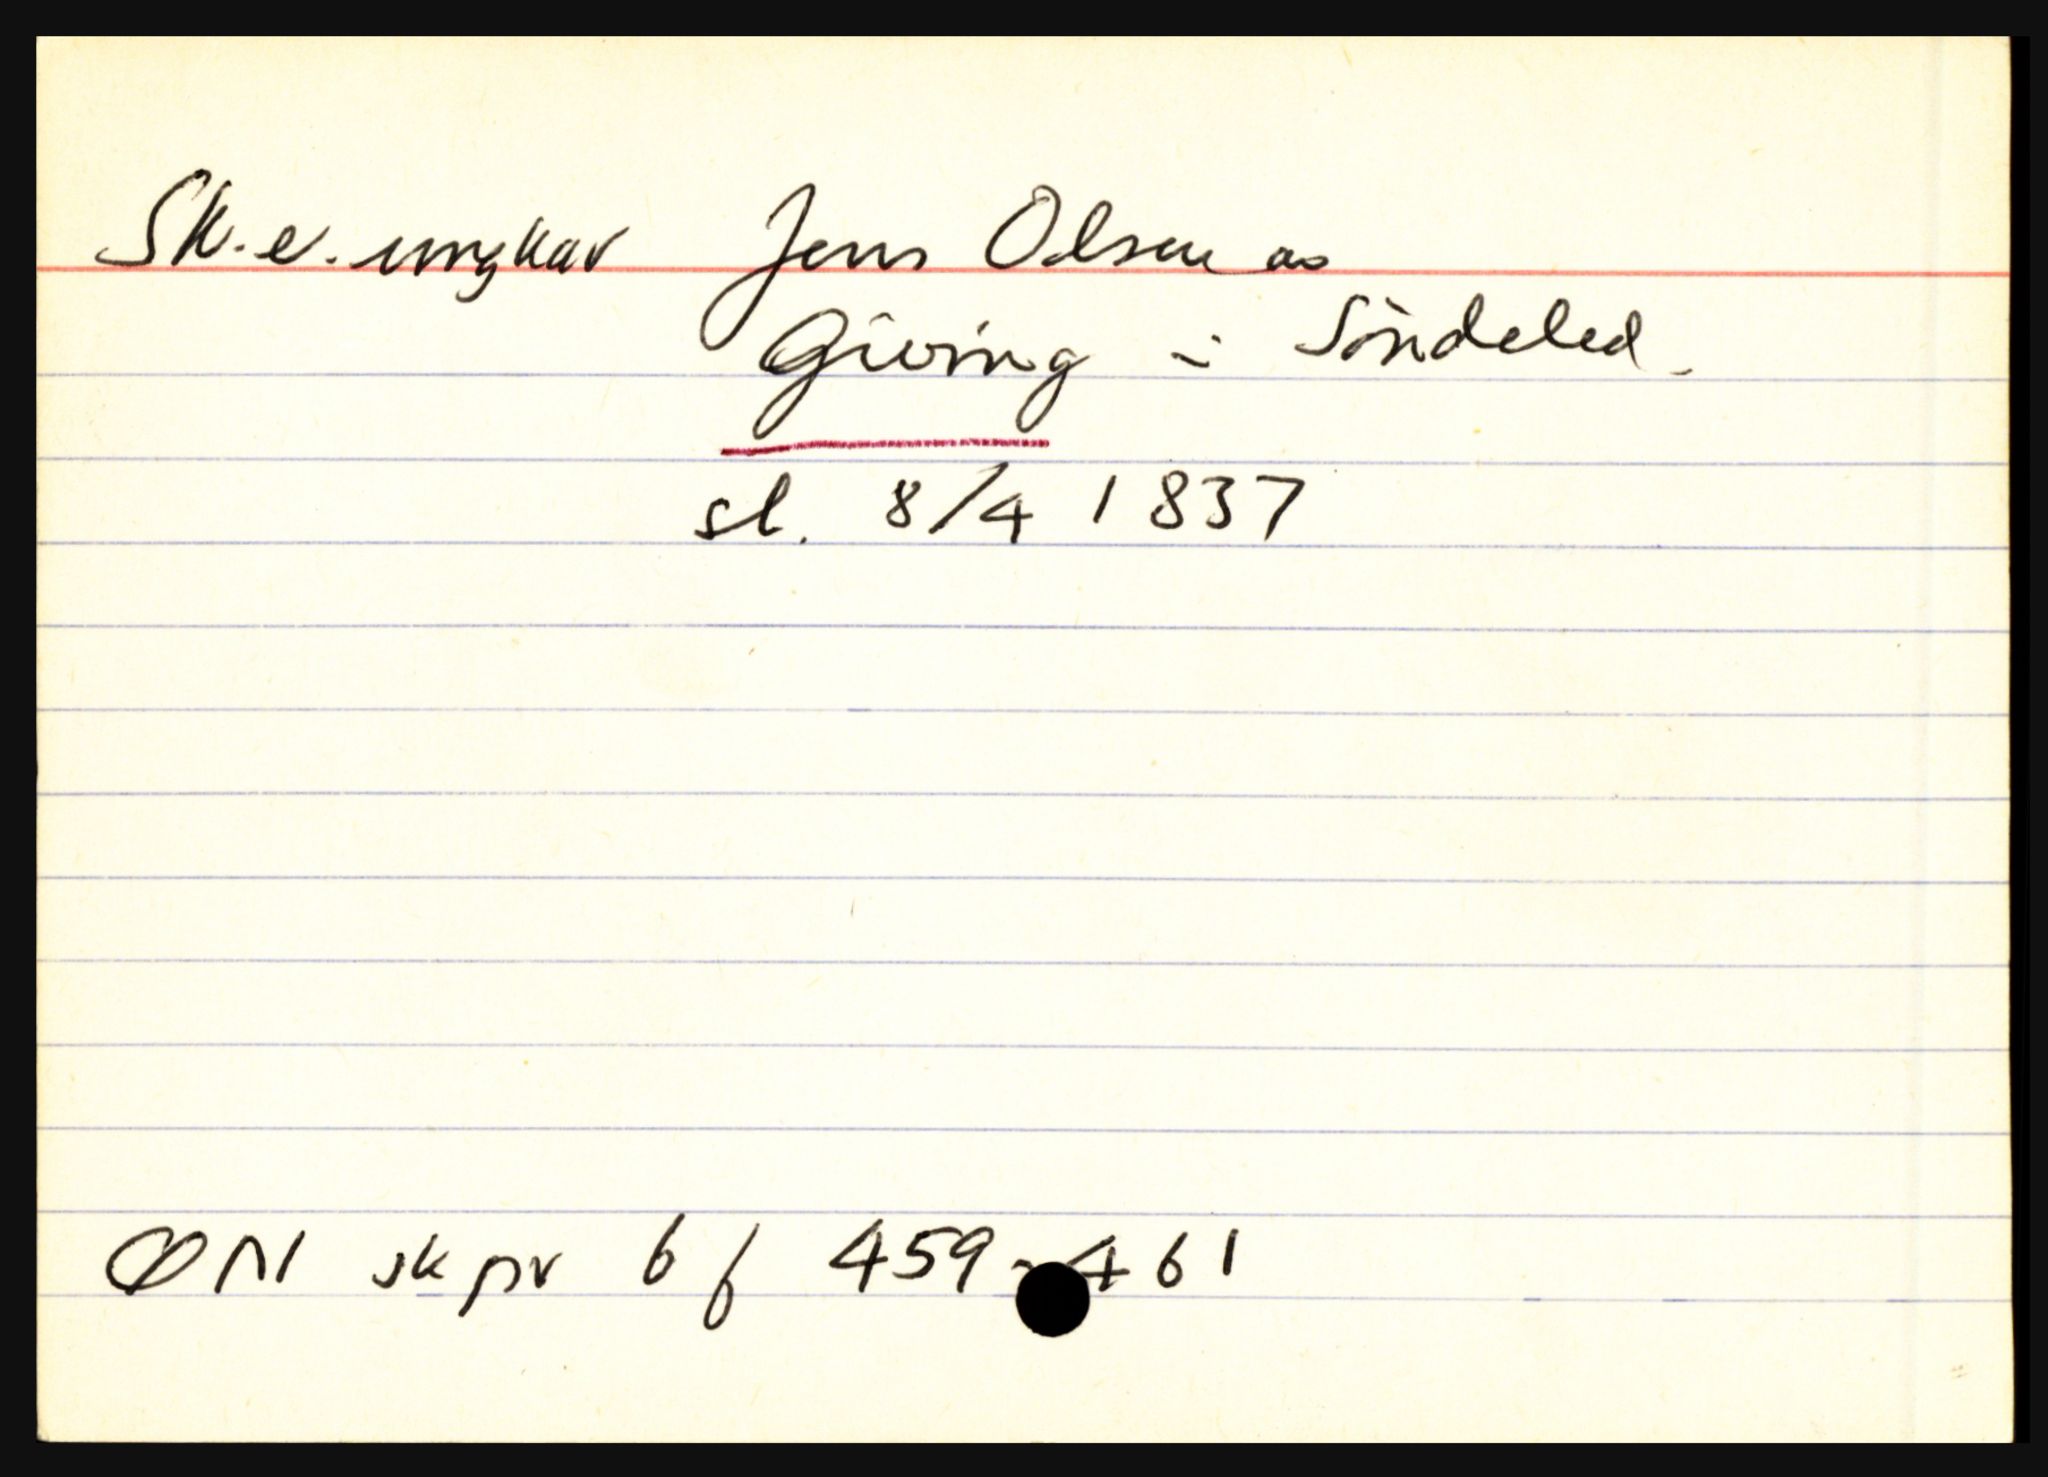 Sk. e. ungkar Jens Olsen av
Giving i Söndeled.
sl. 8/4 1837
ØN skpr 6 f 459-461